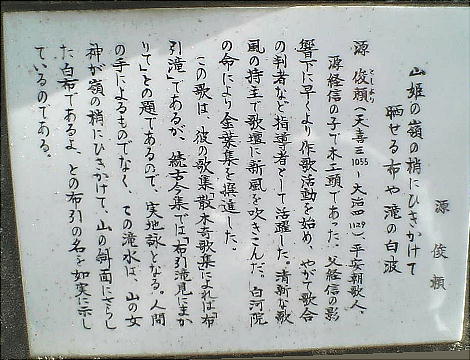 山姫の嶺の梢にひきかけて
晒せる布や滝の白波
源 俊頼
源 俊頼(天喜三1055〜大治四1129)平安朝歌人
としより
源経信の子で木工頭であった。父経信の影
響下に早くより作歌活動を始め、やがて歌合
の判者など指導者として活躍した。清新な歌
風の持主で歌壇に新風を吹きこんだ。白河院
の命により金葉集を撰進した。
この歌は、彼の歌集散木奇歌集によれば「布
引滝」であるが、続古今集では「布引滝見にまか
りて」との題であるので、実地詠となる。人間
の手によるものでなく、この滝水は、山の女
神が嶺の梢にひきかけて、山の斜面にさらし
た白布であるよ、との布引の名を如実に示し
ているのである。